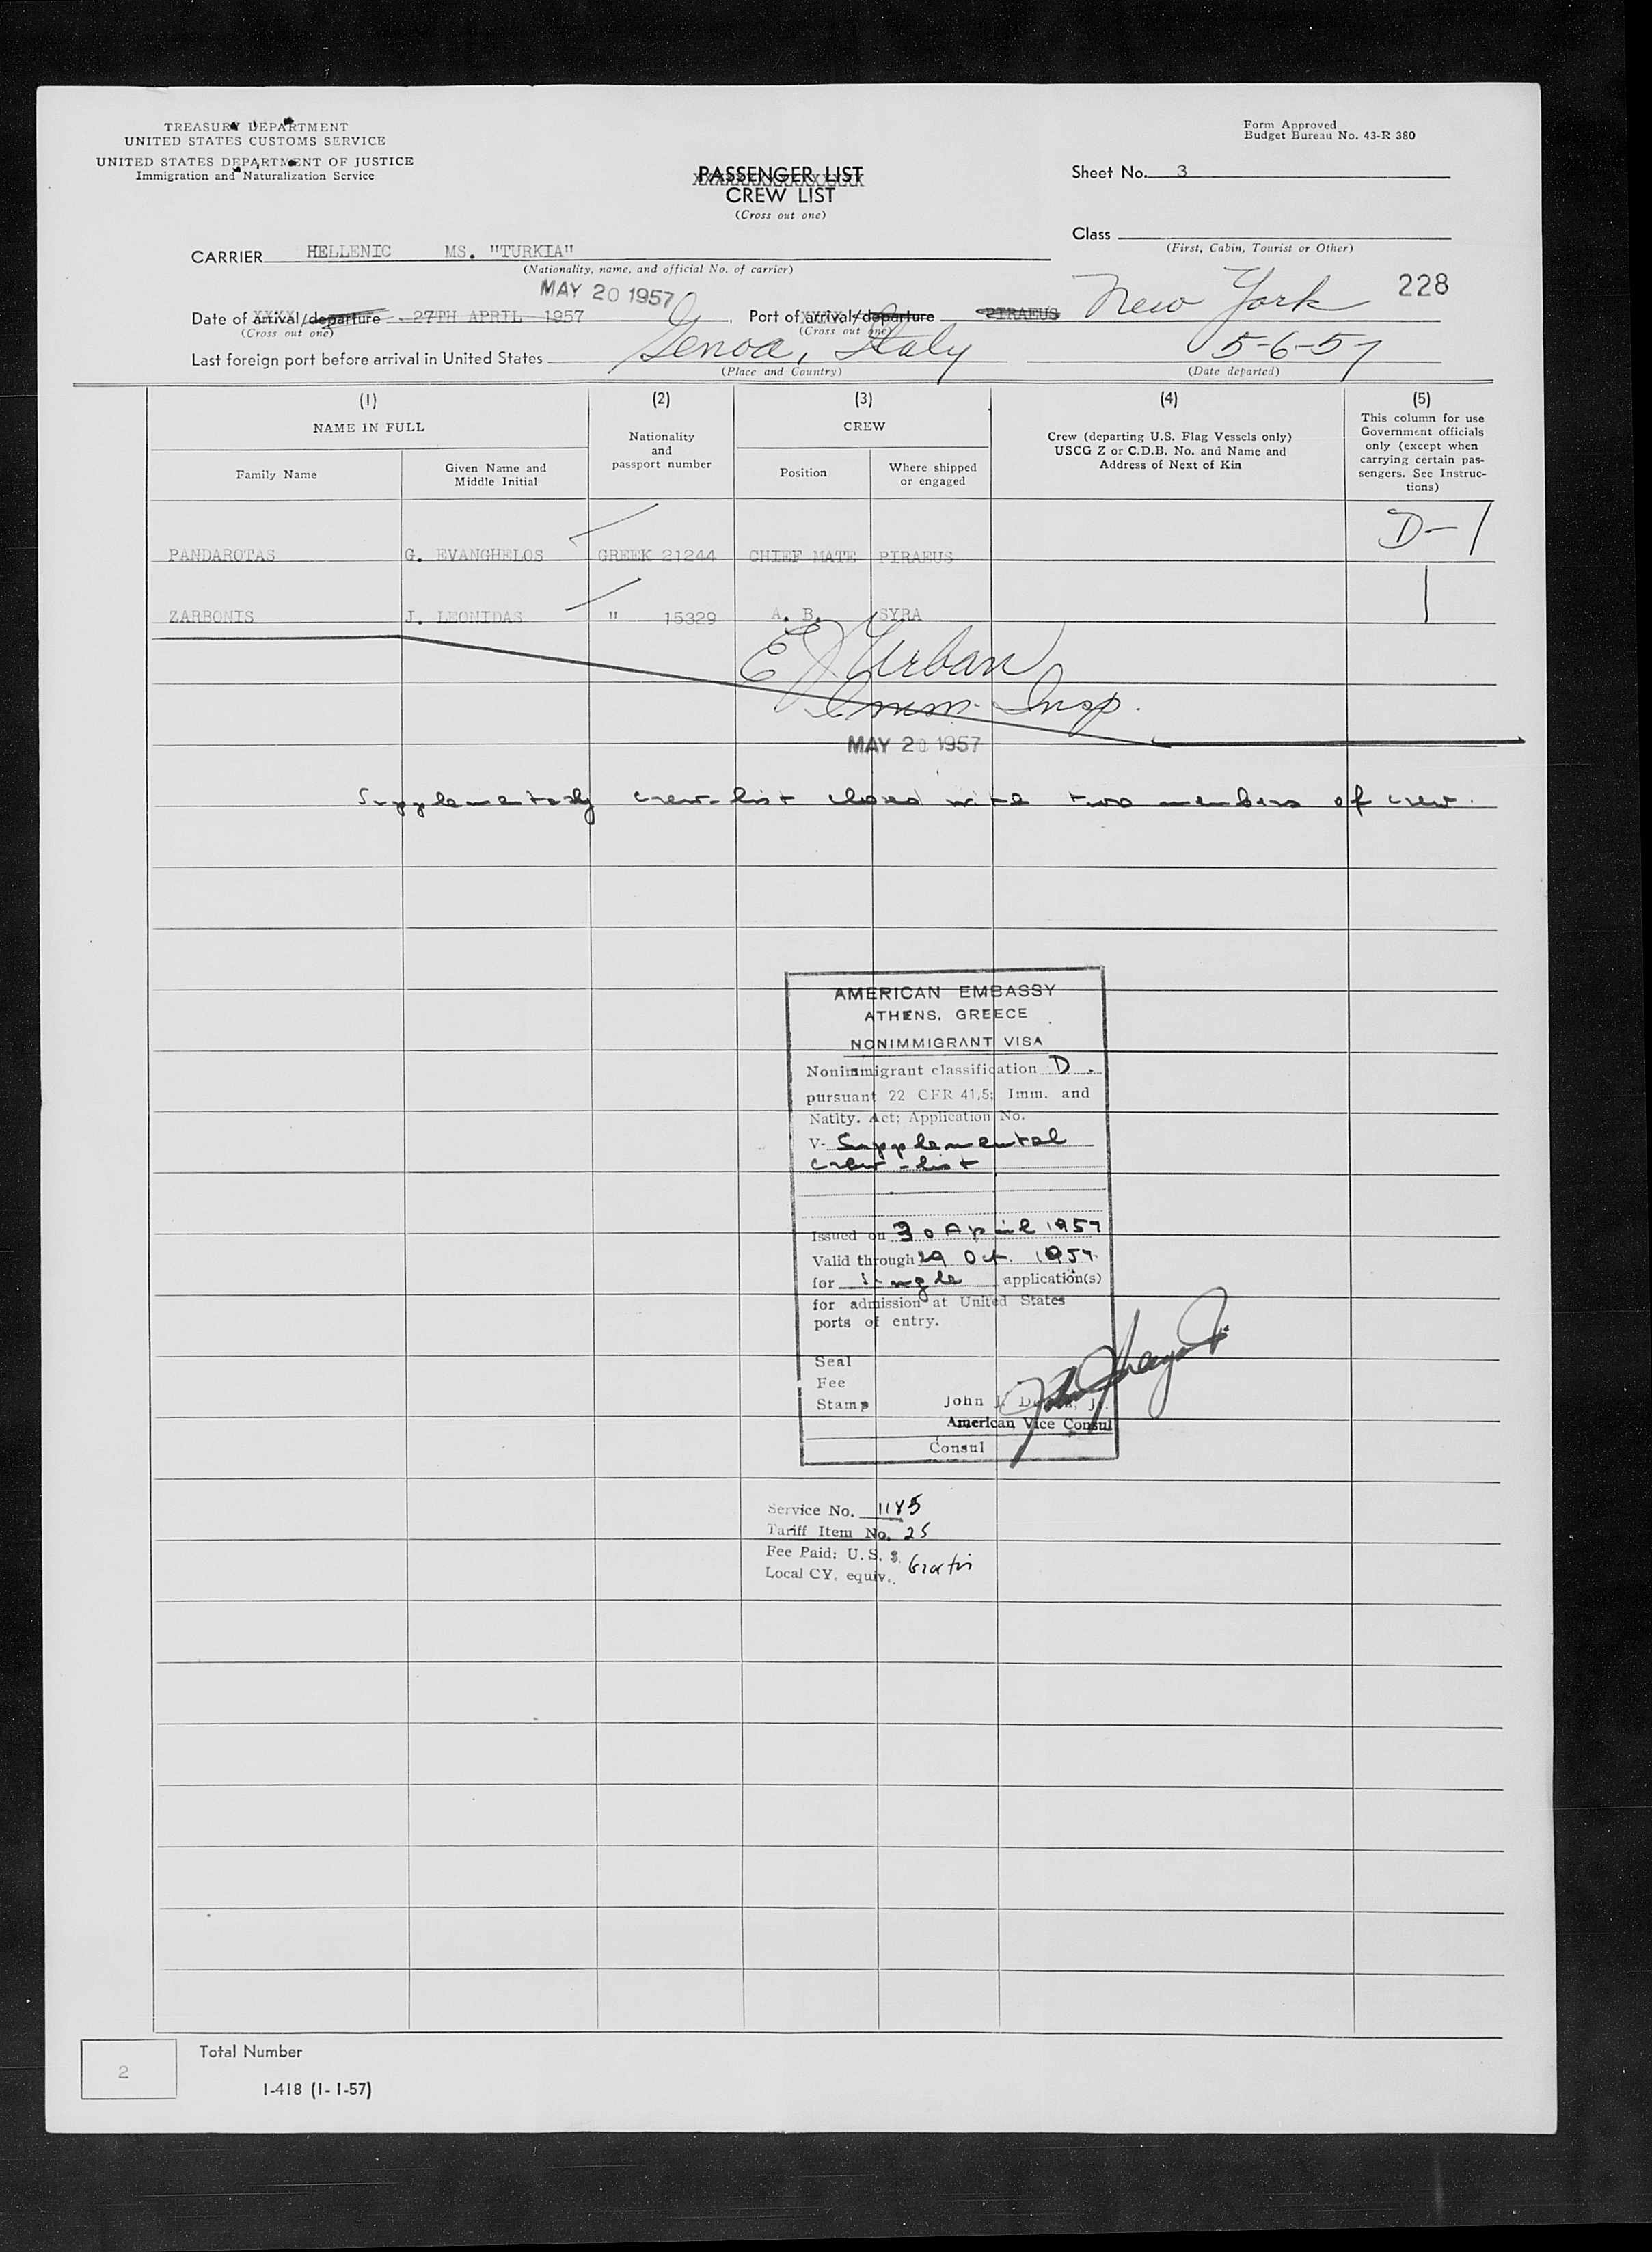 TREASURY DEPARTMENT
UNITED STATES CUSTOMS SERVICE
UNITED STATES DEPARTMENT OF JUSTICE
Immigration and Naturalization Service
Form Approved
Budget Bureau No. 43-R 380
PASSENGER LIST
CREW LIST
(Cross out one)
Sheet No. 3
Class
(First, Cabin, Tourist or Other)
CARRIER HELLENIC MS. "TURKIA"
(Nationality, name, and official No. of carrier)
MAY 20 1957
New York 228
Date of arrival/departure 27TH APRIL 1957 Port of arrival/departure PIRAEUS
(Cross out one) (Cross out one)
Last foreign port before arrival in United States Genoa, Italy 5-6-57
(Place and Country) (Date departed)
(1) (2) (3) (4) (5)
NAME IN FULL
Family Name
Given Name and
Middle Initial
Nationality
and
passport number
CREW
Position
Where shipped
or engaged
Crew (departing U.S. Flag Vessels only)
USCG Z or C.D.B. No. and Name and
Address of Next of Kin
This column for use
Government officials
only (except when
carrying certain pas-
sengers. See Instruc-
tions)
PANDAROTAS G. EVANGHELOS GREEK 21244 CHIEF MATE PIRAEUS D-1
ZARBONIS J. LEONIDAS " 15329 A. B. SYRA |
E J Urban
Imm. Insp.
MAY 20 1957
Supplementary crew-list closed with two members of crew.
AMERICAN EMBASSY
ATHENS, GREECE
NONIMMIGRANT VISA
Nonimmigrant classification D.
pursuant 22 CFR 41,5; Imm. and
Natlty. Act; Application No.
V- Supplemental
crew-list
Issued on 30 April 1957
Valid through 29 Oct. 1957.
for single application(s)
for admission at United States
ports of entry.
Seal
Fee
Stamp
John J.
American Vice Consul
Consul
Service No. 1185
Tariff Item No. 25
Fee Paid: U.S. $. Gratis
Local CY. equiv..
2
Total Number
I-418 (1-1-57)